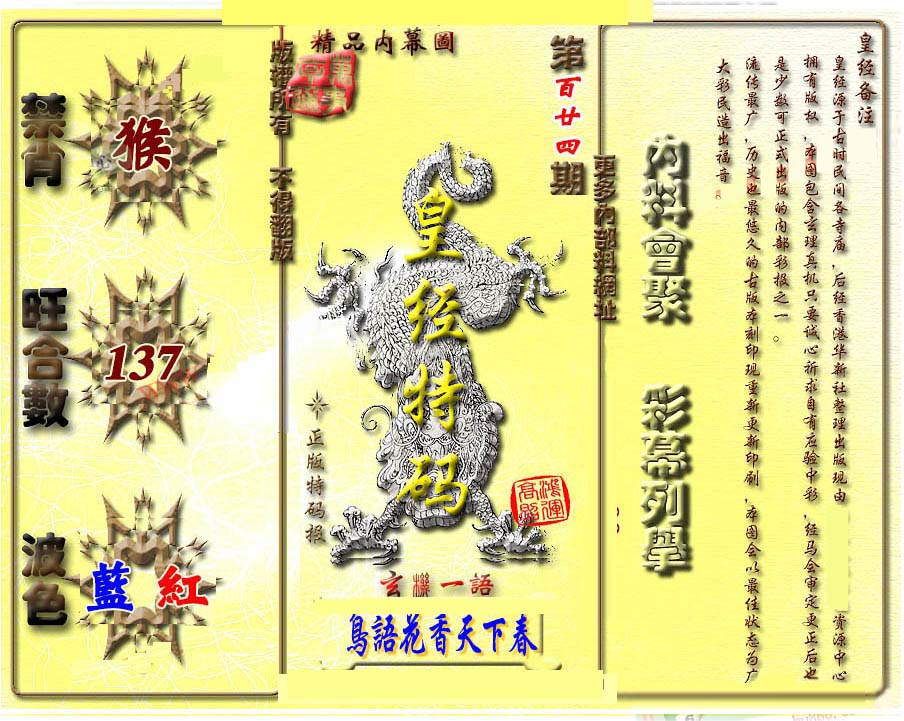 皇经备注
皇经源于古时民间各寺庙，后经香港华新社整理出版现由
资源中心
拥有版权，本图包含玄理真机只要诚心祈求自有应验中彩，经马会审定更正后也
是少数可正式出版的内部彩报之一。
流传最广，历史也最悠久的古版本刻印现重新更新印刷，本图会以最佳状态为广
大彩民造出福音
內料會聚
彩幕列舉
更多內部料網址
第百廿四期
精品内幕圖
皇经特码
正版特码报
鴻運高照
玄機一語
鳥語花香天下春
版權所有 不得翻版
禁肖
猴
旺合數
137
波色
藍 紅